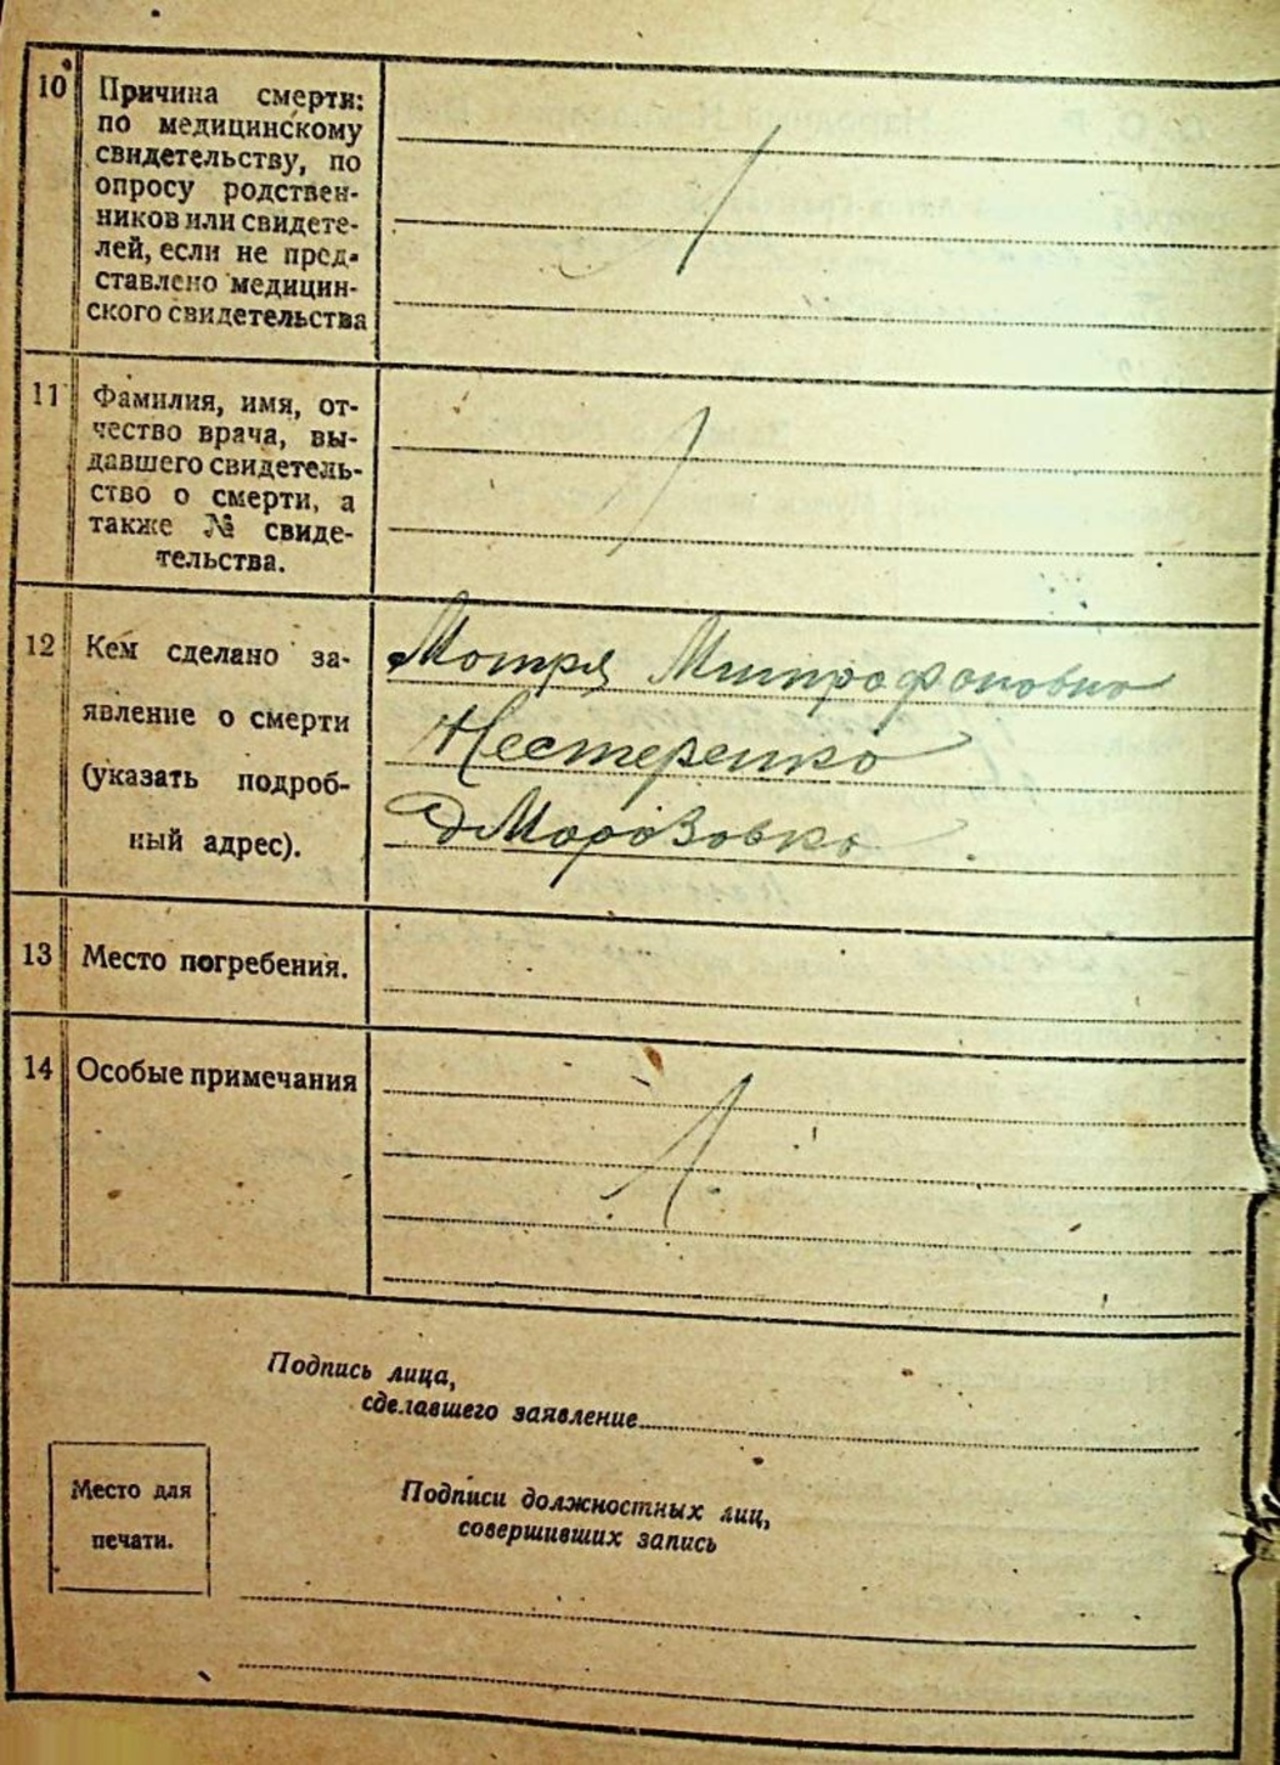 10 Причина смерти:
по медицинскому
свидетельству, по
опросу родствен-
ников или свидете-
лей, если не пред-
ставлено медицин-
ского свидетельства
11 Фамилия, имя, от-
чество врача, вы-
давшего свидетель-
ство о смерти, а
также № свиде-
тельства.
12 Кем сделано за-
явление о смерти
(указать подроб-
ный адрес).
Мотря Митрофановна
Нестеренко
д Морозовка
13 Место погребения.
14 Особые примечания
Подпись лица,
сделавшего заявление
Место для
печати.
Подписи должностных лиц,
совершивших запись